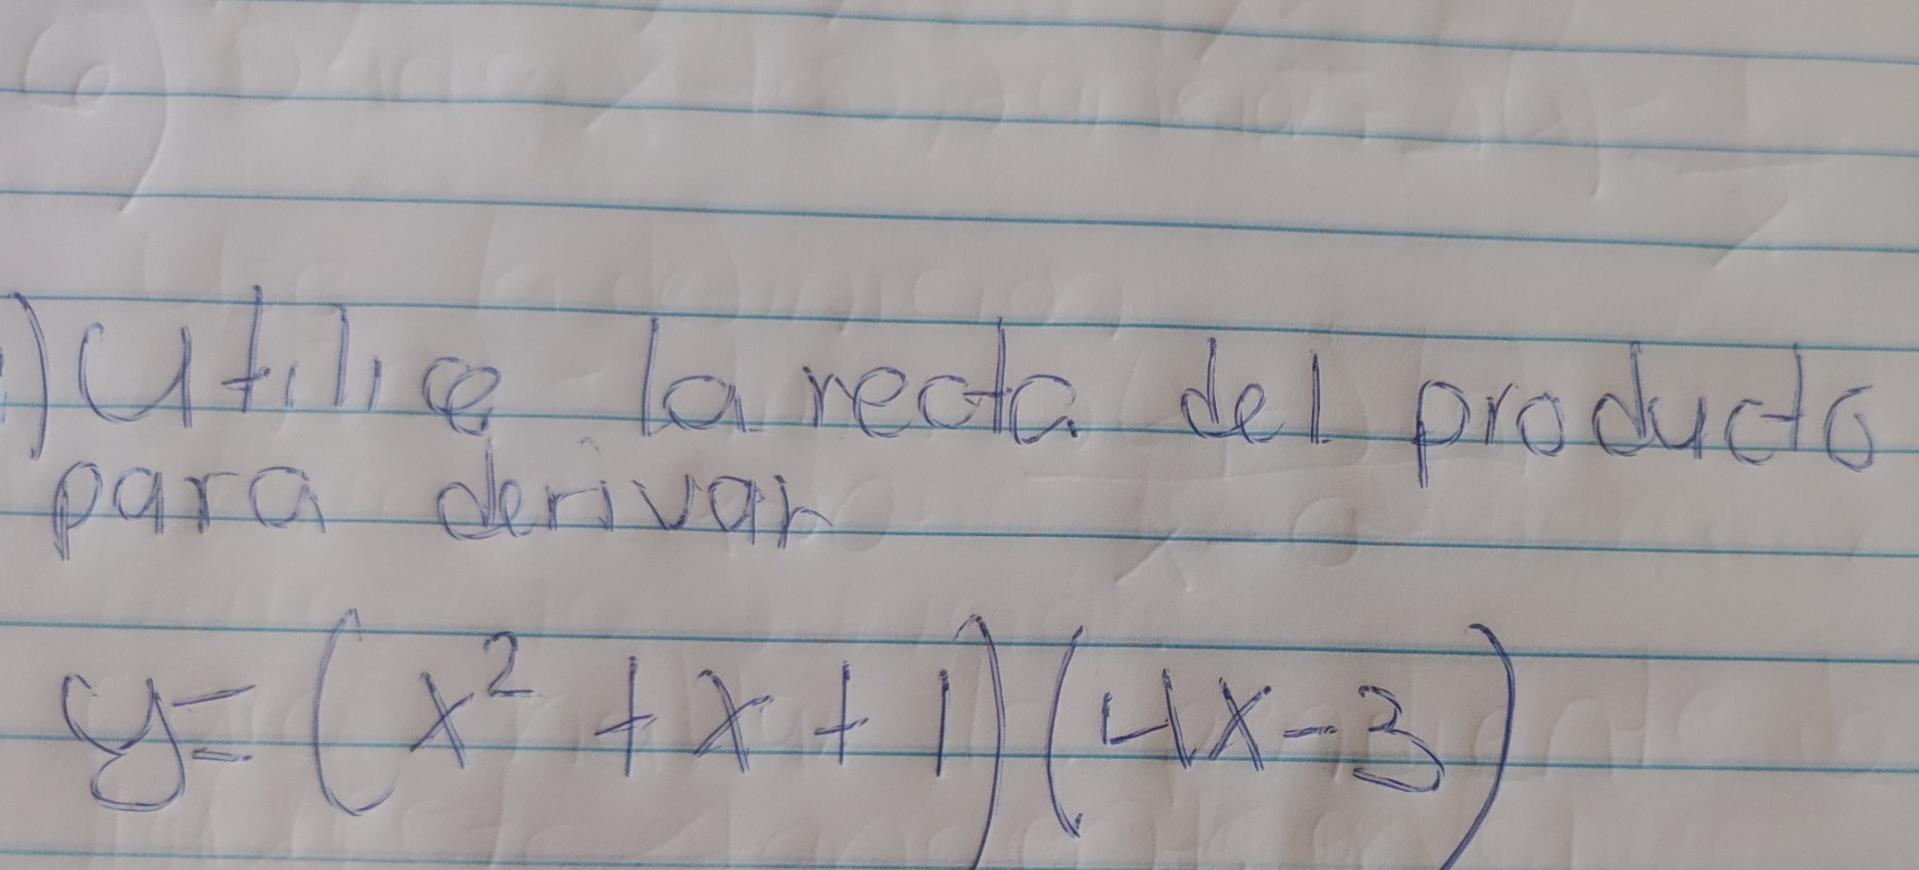 ) Utilice la recta del producto
para derivar
y = (x² + x + 1)(4x - 3)